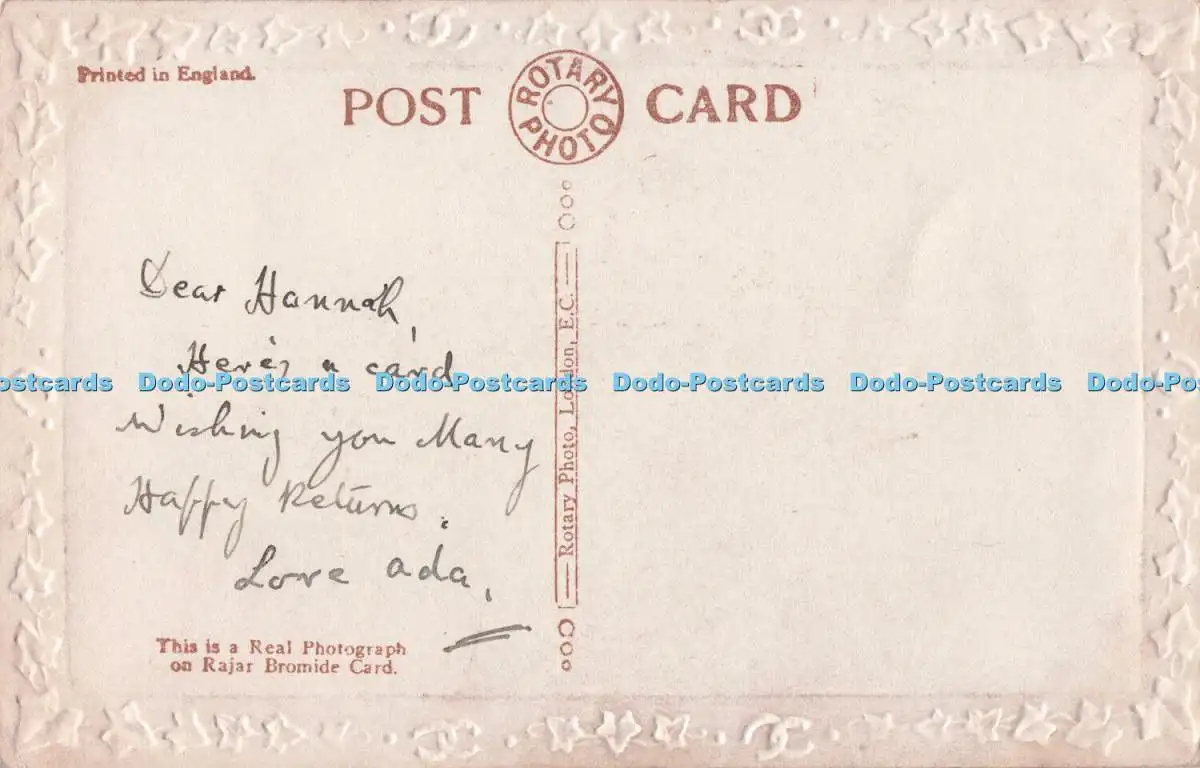 Printed in England.
POST CARD
ROTARY PHOTO
Dear Hannah,
Here's a card
Wishing you Many
Happy Returns.
Love Ada,
Rotary Photo, London, E.C.
This is a Real Photograph
on Rajar Bromide Card.
ostcards Dodo-Postcards Dodo-Postcards Dodo-Postcards Dodo-Postcards Dodo-Po